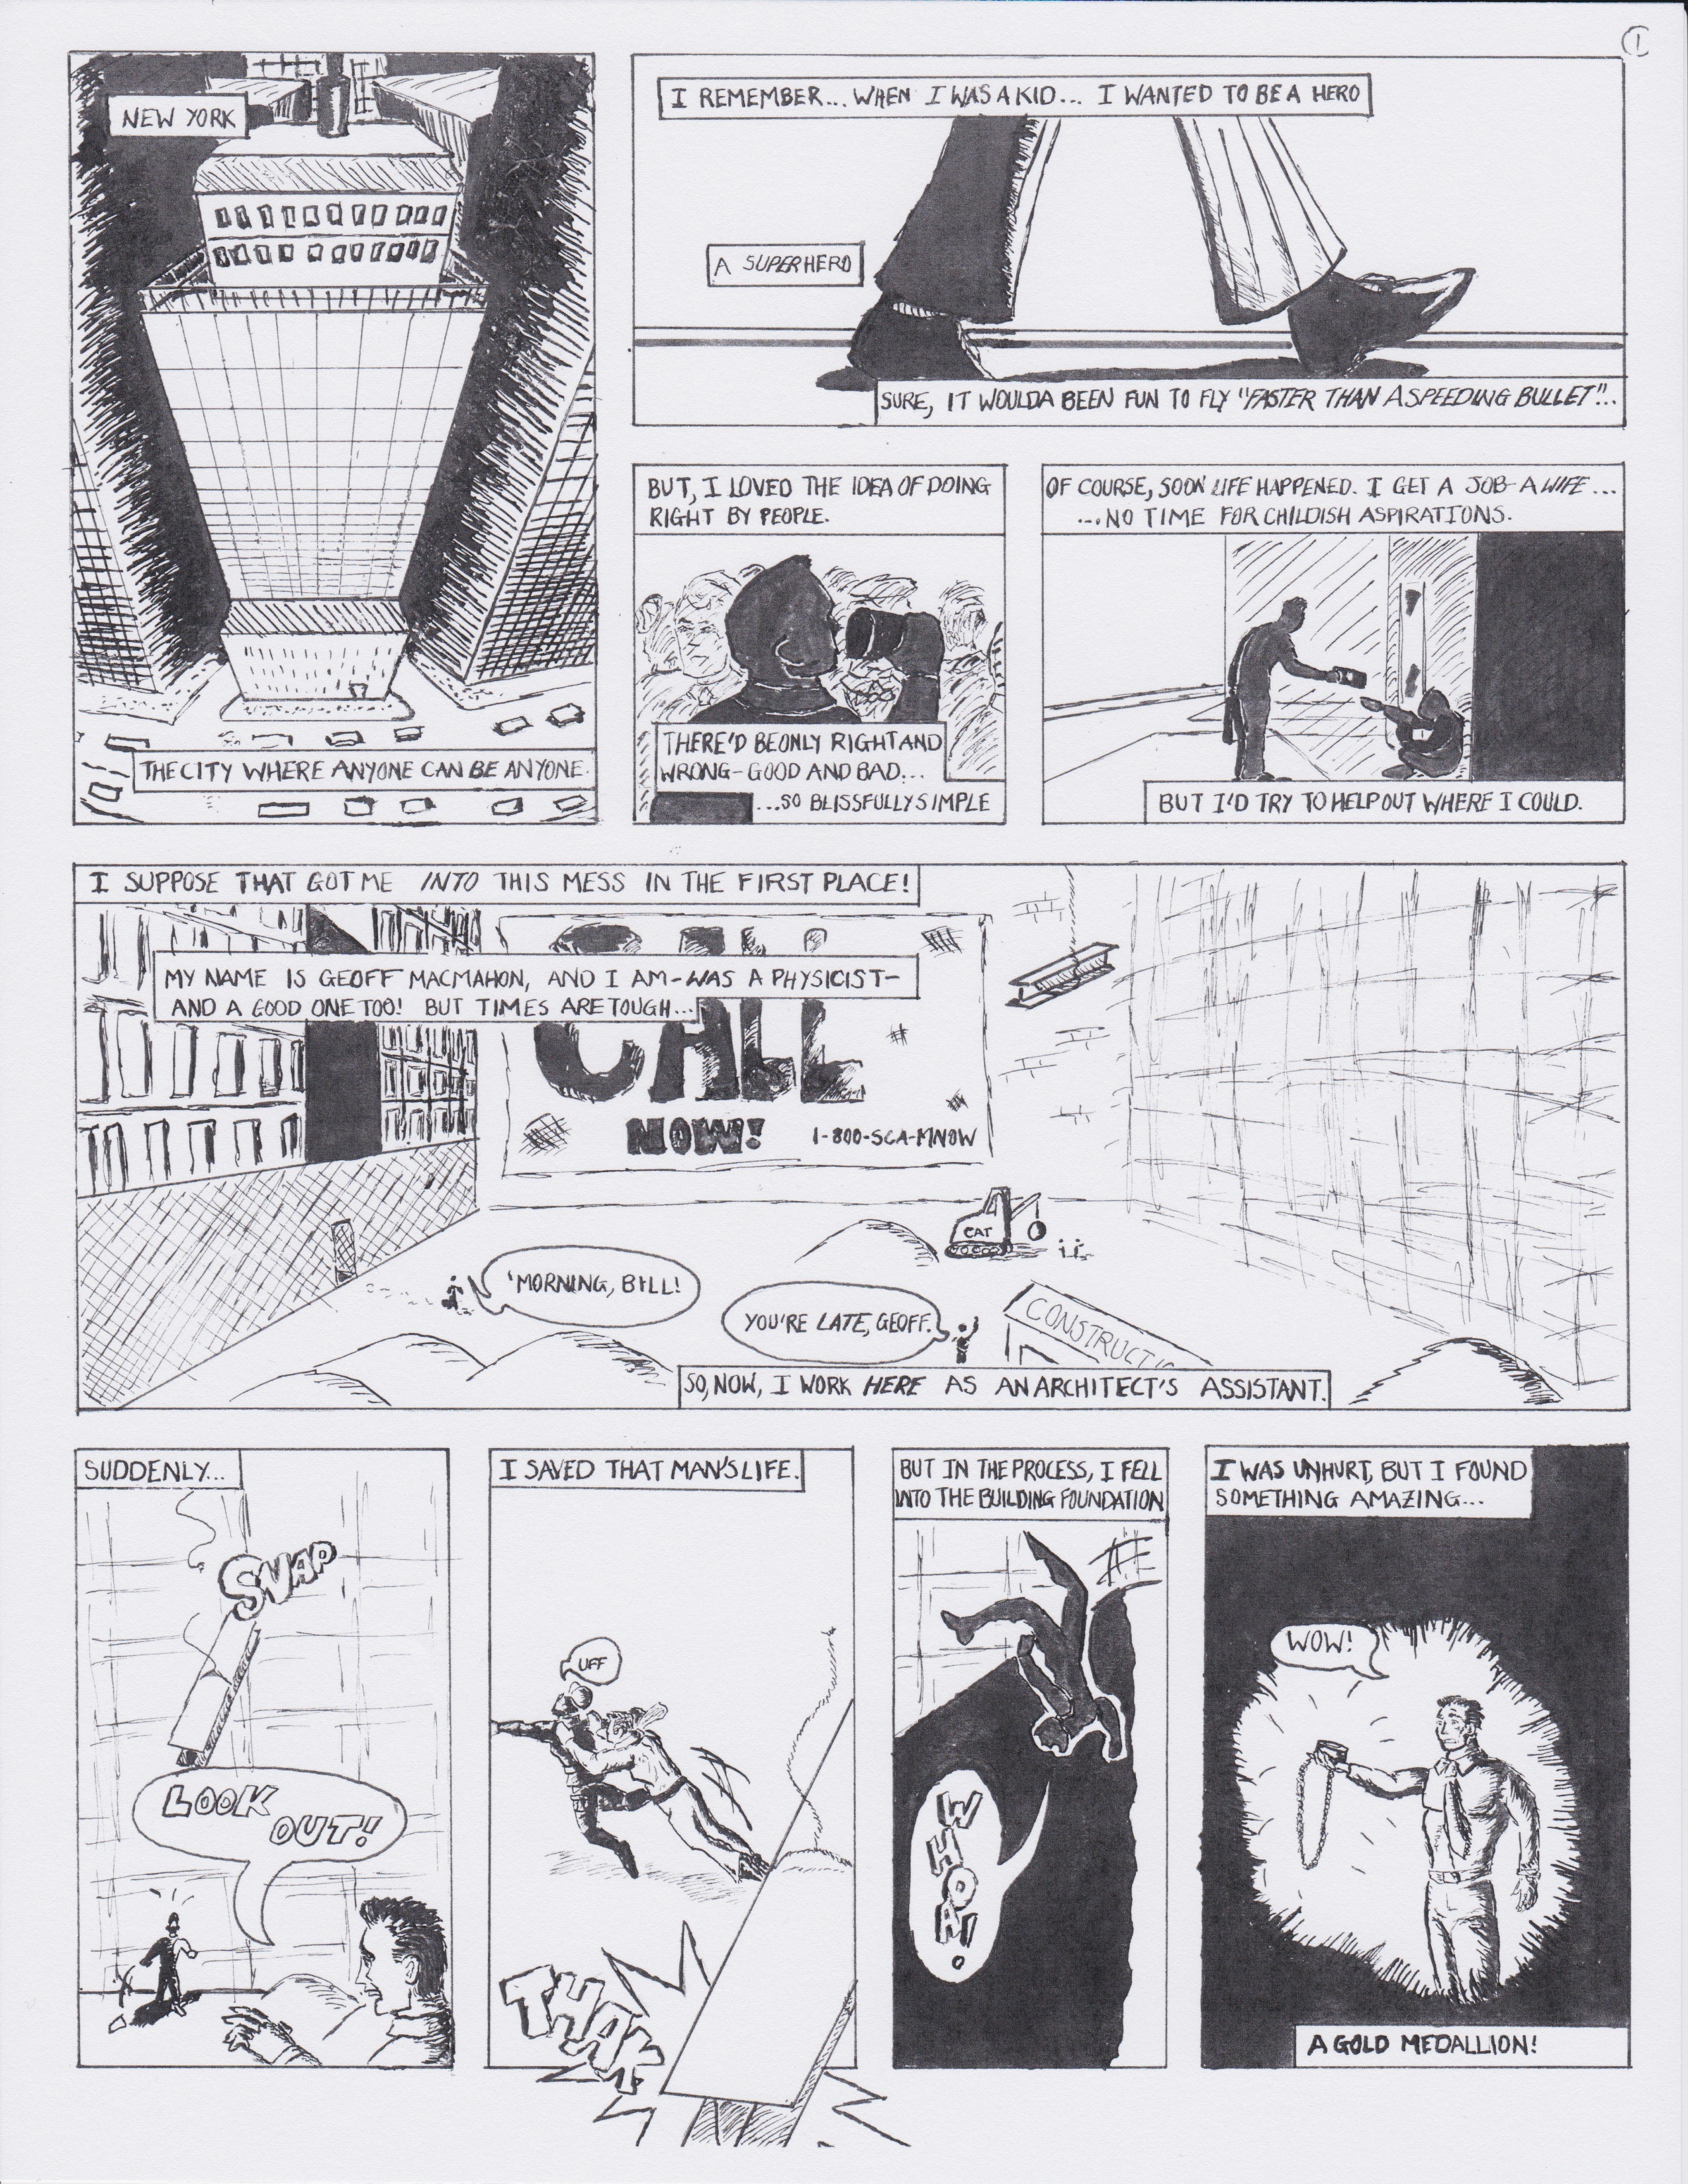 1
NEW YORK
THE CITY WHERE ANYONE CAN BE ANYONE.
I REMEMBER... WHEN I WAS A KID... I WANTED TO BE A HERO
A SUPERHERO
SURE, IT WOULDA BEEN FUN TO FLY "FASTER THAN A SPEEDING BULLET"...
BUT, I LOVED THE IDEA OF DOING
RIGHT BY PEOPLE.
THERE'D BE ONLY RIGHT AND
WRONG-GOOD AND BAD...
...SO BLISSFULLY SIMPLE
OF COURSE, SOON LIFE HAPPENED. I GET A JOB-A WIFE...
...NO TIME FOR CHILDISH ASPIRATIONS.
BUT I'D TRY TO HELP OUT WHERE I COULD.
I SUPPOSE THAT GOT ME INTO THIS MESS IN THE FIRST PLACE!
MY NAME IS GEOFF MACMAHON, AND I AM-WAS A PHYSICIST-
AND A GOOD ONE TOO! BUT TIMES ARE TOUGH...
CALL
CALL
NOW!
1-800-SCA-MNOW
CAT
'MORNING, BILL!
YOU'RE LATE, GEOFF.
CONSTRUCTIO
SO, NOW, I WORK HERE AS AN ARCHITECT'S ASSISTANT.
SUDDENLY...
SNAP
LOOK
OUT!
I SAVED THAT MAN'S LIFE.
UFF
THAK
BUT IN THE PROCESS, I FELL
INTO THE BUILDING FOUNDATION
WHOA!
I WAS UNHURT, BUT I FOUND
SOMETHING AMAZING...
WOW!
A GOLD MEDALLION!